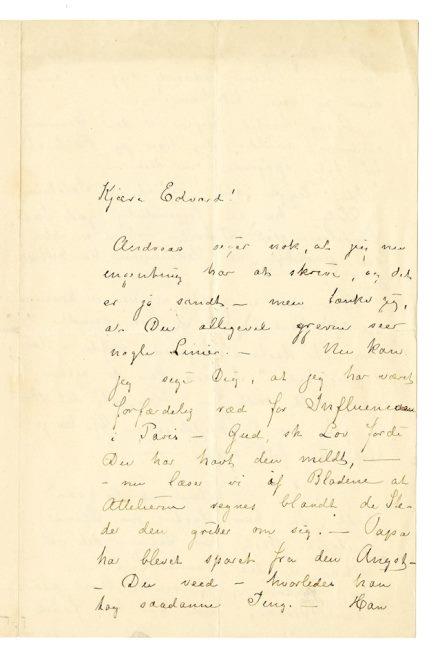 Kjære Edvard!
Andreas siger nok, at jeg nu
ingenting har at skrive, og det
er jo sandt – men tænker jeg,
at Du alligevel gjerne seer
nogle Linier. – Nu kan
jeg sige Dig, at jeg har været
forfærdelig ræd for Influencaen
i Paris – Gud ske Lov fordi
Du har havt den mildt, —
– nu læser vi af Bladene at
regnes blandt de Ste-
der den griber om sig. – Papa
har blevet sparet fra den Angst –
– Du veed – hvorledes han
tog saadanne Ting. – Han